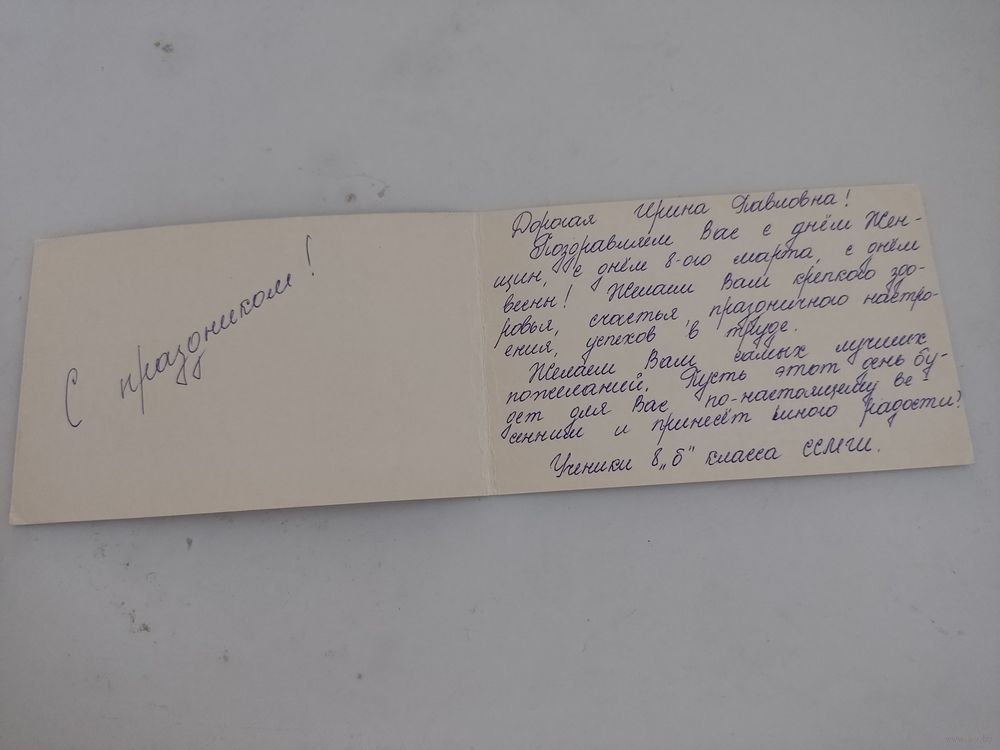 С праздником!
Дорогая Ирина Павловна!
Поздравляем Вас с днём Жен-
щин, с днём 8-ого марта, с днём
весны! Желаем Вам крепкого здо-
ровья, счастья, праздничного настро-
ения, успехов в труде.
Желаем Вам самых лучших
пожеланий. Пусть этот день бу-
дет для Вас по-настоящему ве-
сенним и принесёт много радости!
Ученики 8 „б" класса ССМШ.